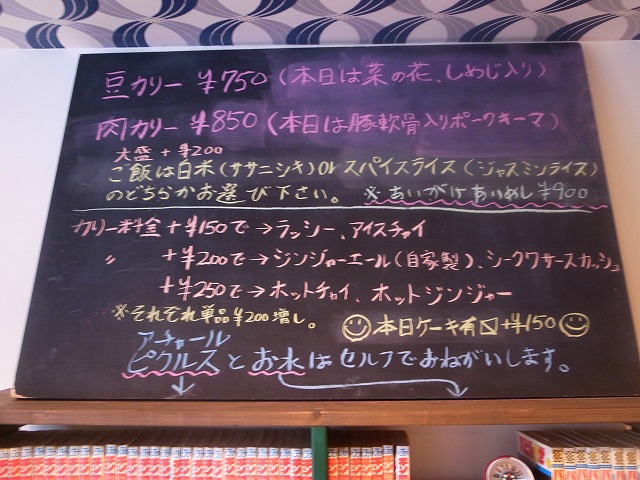 豆カリー ¥750(本日は菜の花、しめじ入り)
肉カリー ¥850(本日は豚軟骨入りポークキーマ)
大盛+¥200
ご飯は白米(ササニシキ)orスパイスライス(ジャスミンライス)
のどちらかお選び下さい。 ※あいがけあいめし¥900
カリー料金+¥150で→ラッシー、アイスチャイ
〃 +¥200で→ジンジャーエール(自家製)、シークワサースカッシュ
+¥250で→ホットチャイ、ホットジンジャー
※それぞれ単品¥200増し。
本日ケーキ有〼+¥150
アチャール
ピクルスとお水はセルフでおねがいします。